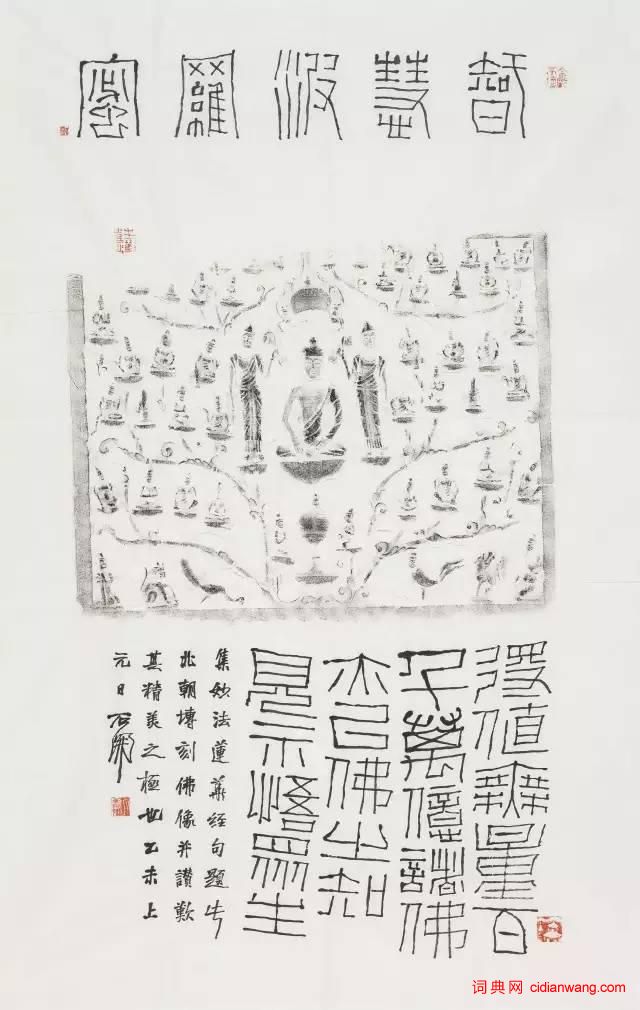 智慧波羅密
復值無量百
千萬億諸佛
亦以佛之知
見示悟眾生
集妙法蓮華經句題此
北朝塼刻佛像并讚歎
其精美之極也乙未上
元日石開
词典网 cidianwang.com